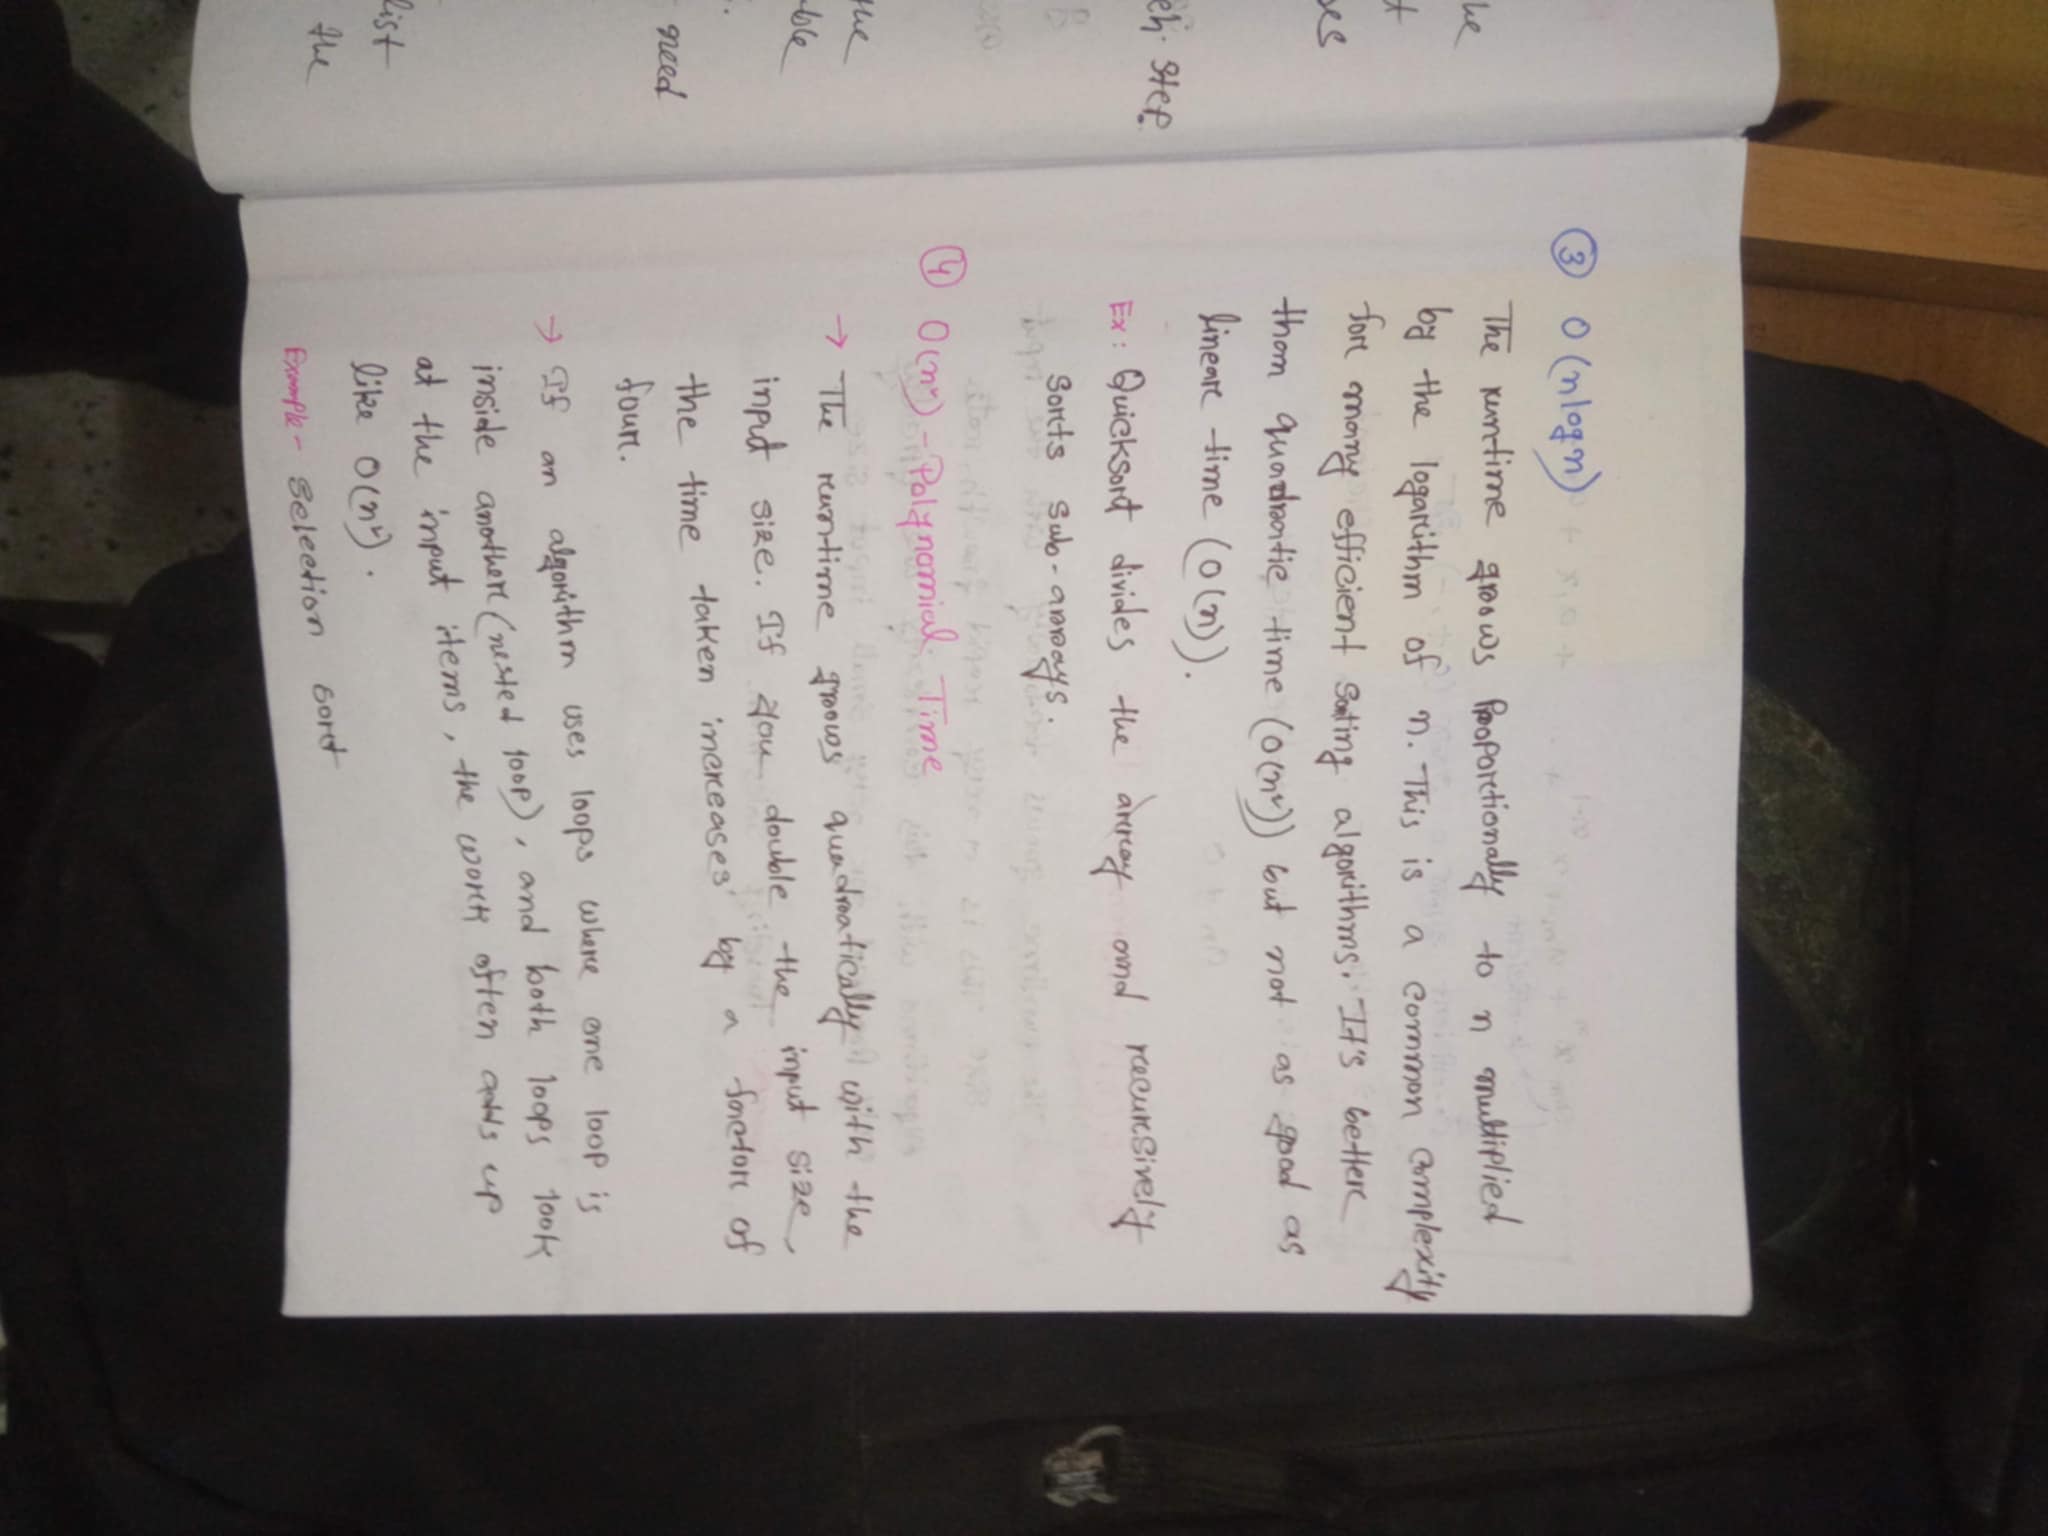 he
t
ses
eh step.
the
able
need
list
the
③ O(nlogn)
The runtime grows proportionally to n multiplied
by the logarithm of n. This is a common complexity
for many efficient Sorting algorithms. It's better
than quadratic time (O(n²)) but not as good as
linear time (O(n)).
Ex: Quicksort divides the array and recursively
Sorts Sub-arrays.
④ O(n²) - Polynomial Time
→ The runtime grows quadratically with the
input size. If you double the input size,
the time taken increases by a factor of
four.
→ If an algorithm uses loops where one loop is
inside another (nested loop), and both loops look
at the input items, the work often adds up
like O(n²).
Example - Selection Sort